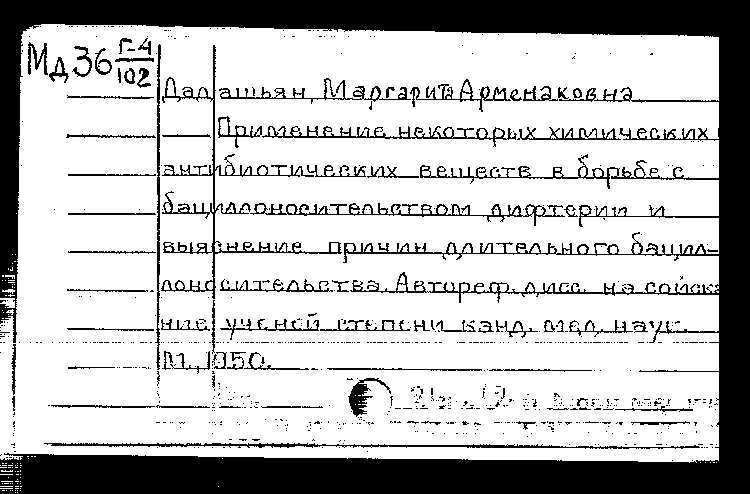 Мд36 Г-4/102
Далашьян, Маргарита Арменаковна
Применение некоторых химических
антибиотических веществ в борьбе с
бациллоносительством дифтерии и
выяснение причин длительного бацил-
лоносительства. Автореф. дисс. на соиска
ние ученой степени канд. мед. наук.
М., 1950.